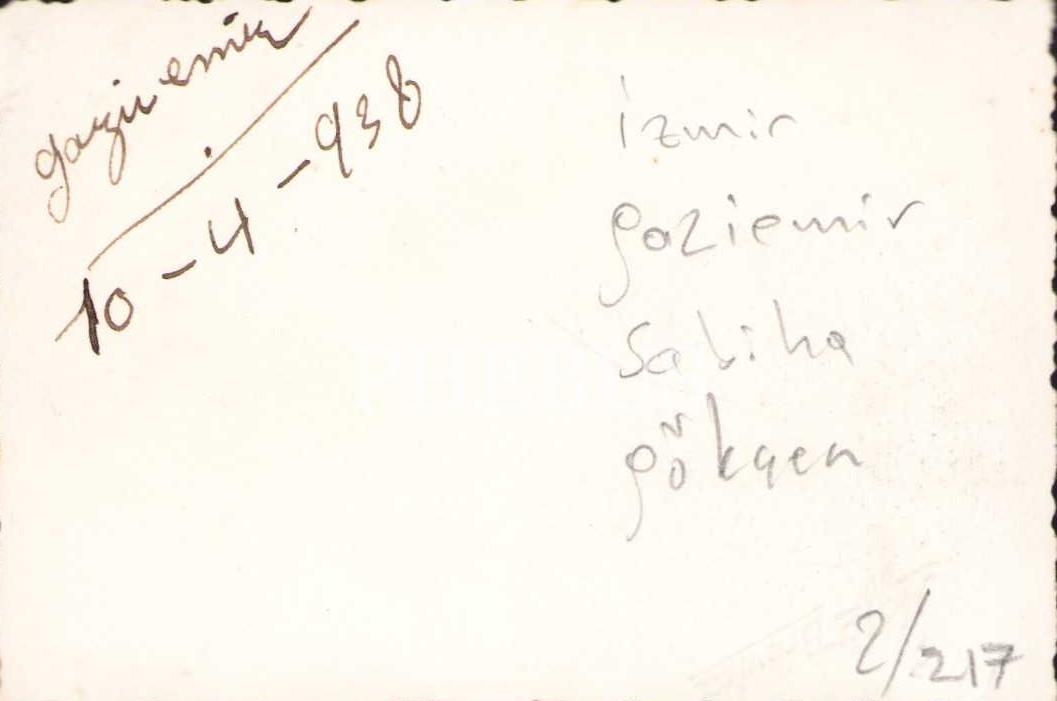 gaziemir
10-4-938
izmir
gaziemir
Sabiha
gökçen
2/217